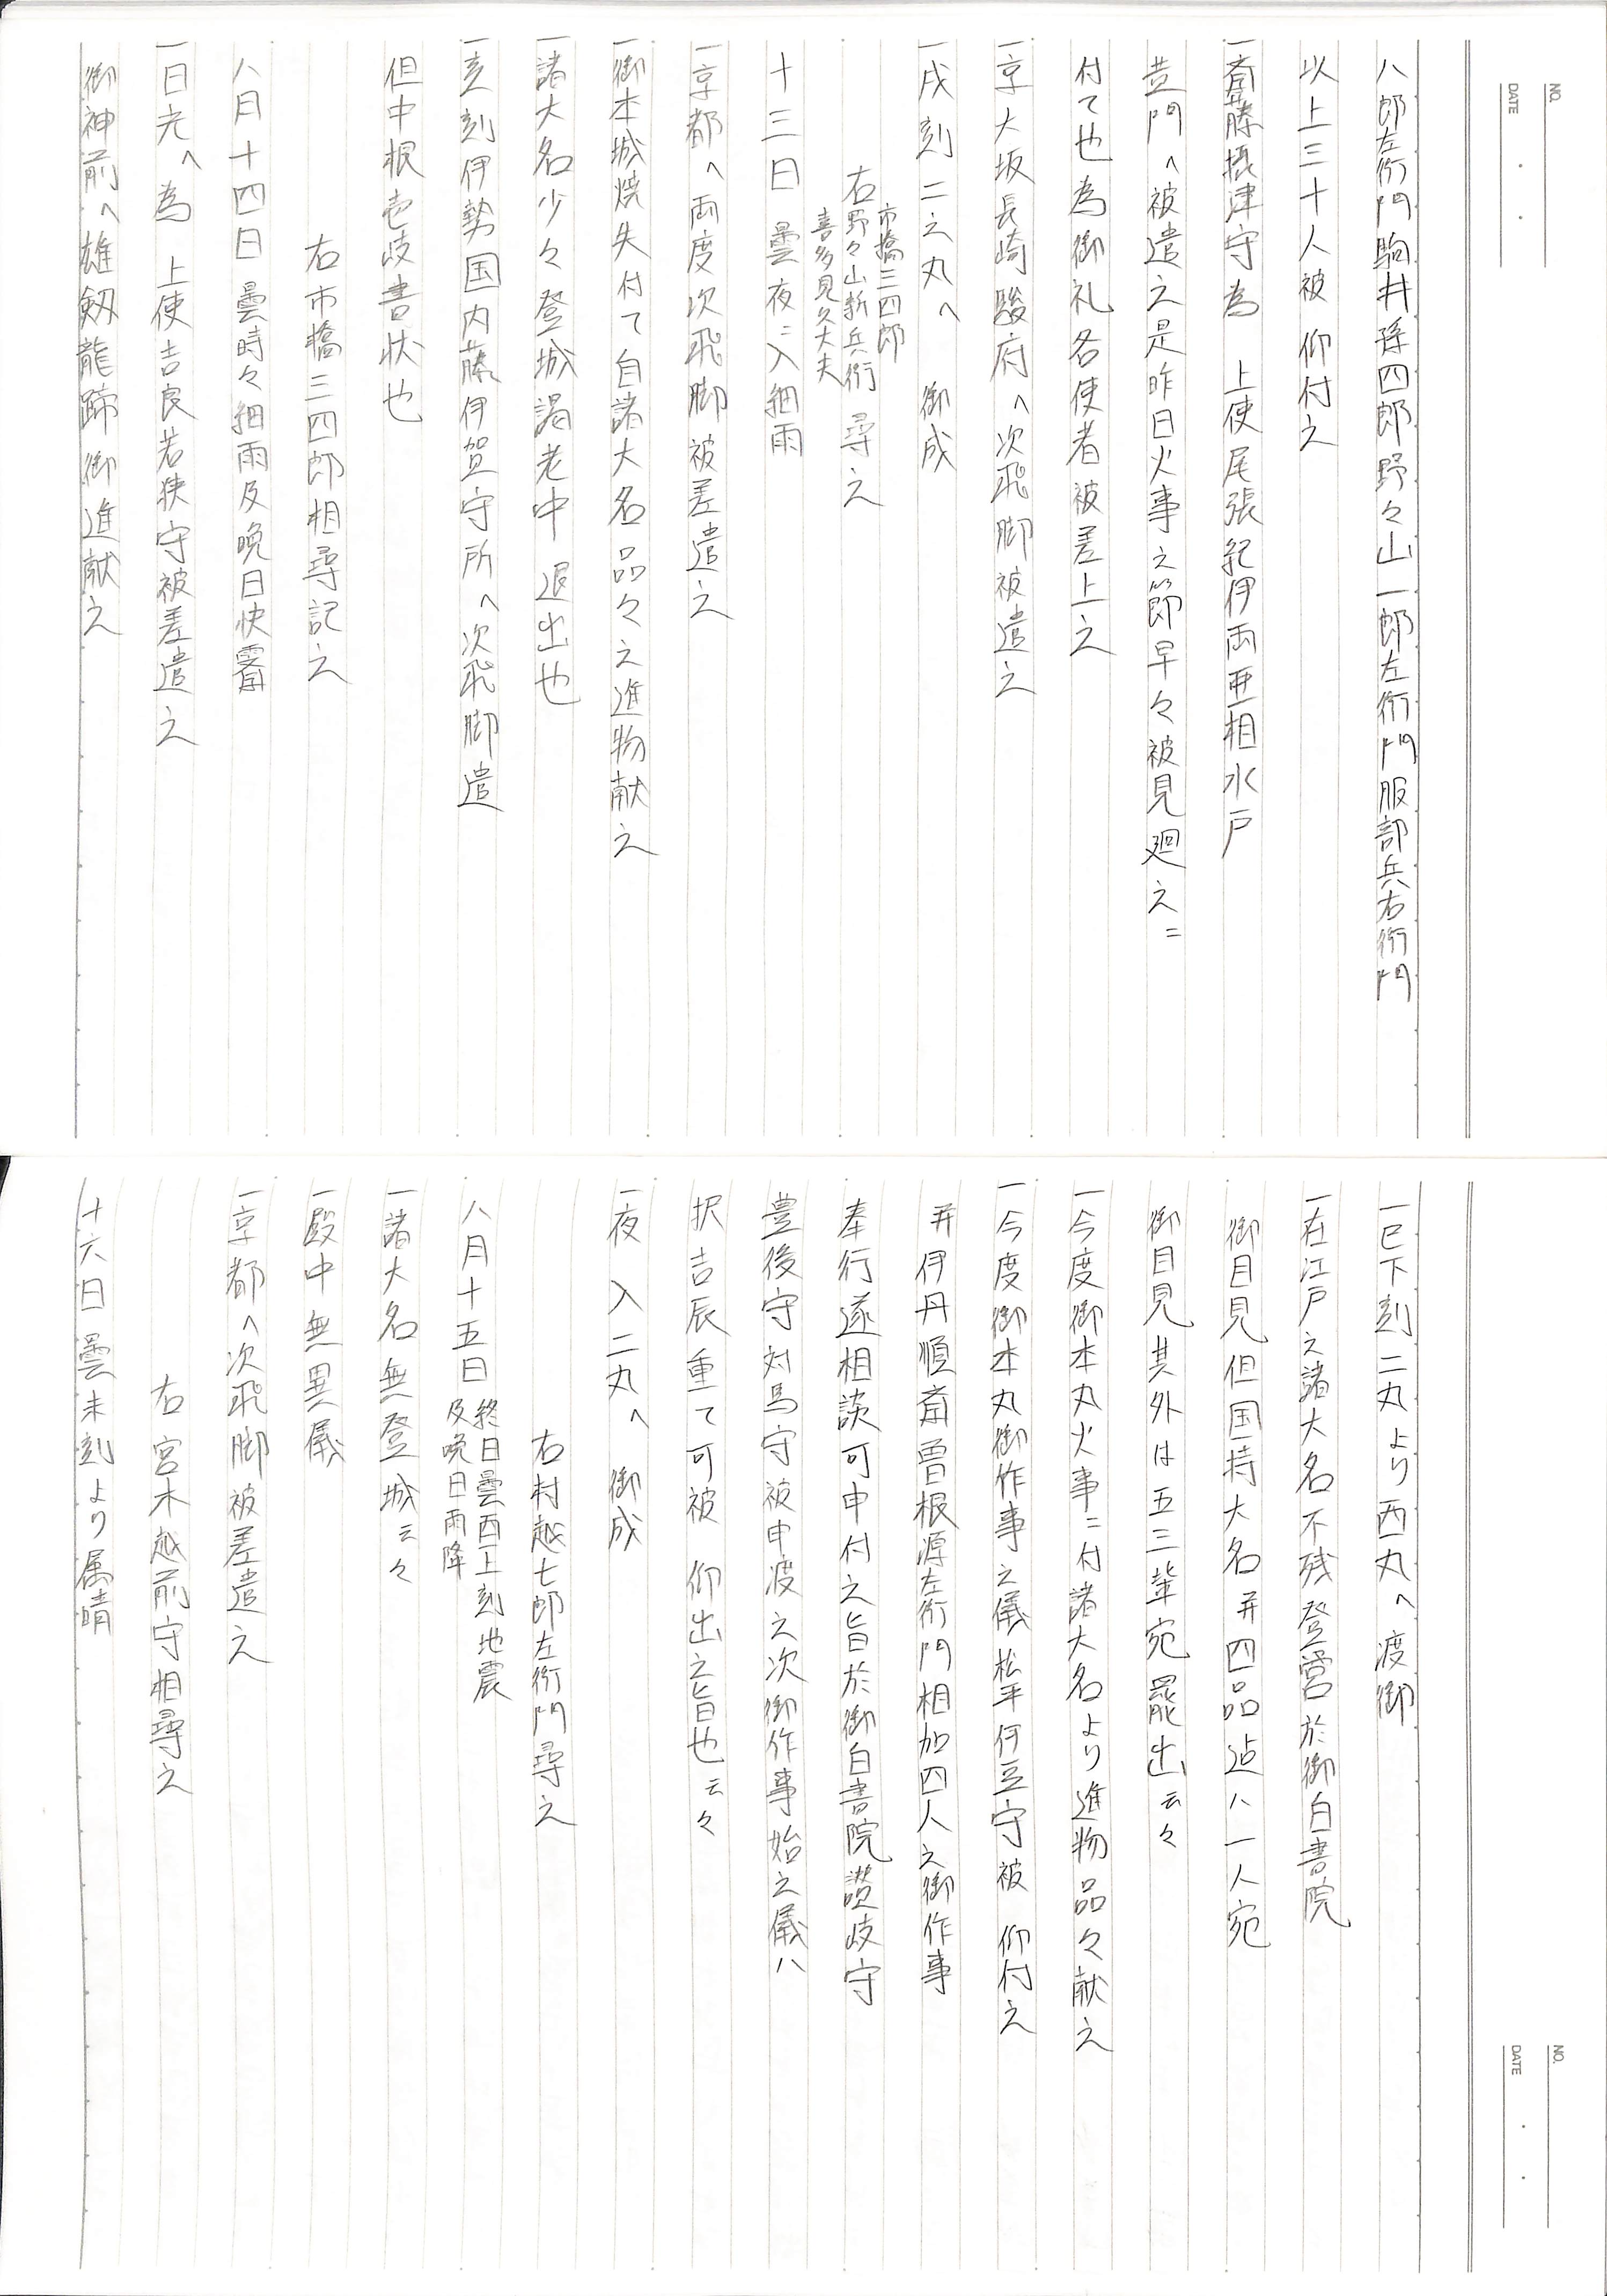 NO.
DATE
八郎左衛門駒井孫四郎野々山一郎左衛門服部兵右衛門
以上三十人被 仰付之
一斎藤摂津守為 上使尾張紀伊両亜相水戸
黄門へ被遣之是昨日火事之節早々被見廻之ニ
付て也為御礼各使者被差上之
一京大坂長崎駿府へ次飛脚被遣之
一戌刻二之丸へ 御成
市橋三四郎
右野々山新兵衛 尋之
喜多見久大夫
十三日 曇夜ニ入細雨
一京都へ両度次飛脚被差遣之
一御本城焼失付て自諸大名品々之進物献之
一諸大名少々登城謁老中 退出也
一亥刻伊勢国内藤伊賀守所へ次飛脚遣
但中根壱岐書状也
右市橋三四郎相尋記之
八月十四日曇時々細雨及晩日快霽
一日光へ為 上使吉良若狭守被差遣之
御神前へ雄剱龍蹄御進献之
NO.
DATE
一巳下刻二丸より西丸へ渡御
一在江戸之諸大名不残登営於御白書院
御目見但国持大名并四品迠ハ一人宛
御目見其外は五三輩宛罷出云々
一今度御本丸火事ニ付諸大名より進物品々献之
一今度御本丸御作事之儀松平伊豆守被 仰付之
并伊丹順斎曽根源左衛門相加四人之御作事
奉行遂相談可申付之旨於御白書院讃岐守
豊後守対馬守被申渡之次御作事始之儀ハ
択吉辰重て可被 仰出之旨也云々
一夜 入二丸へ 御成
右村越七郎左衛門尋之
八月十五日 終日曇酉上刻地震
及晩日雨降
一諸大名無登城云々
一殿中無異儀
一京都へ次飛脚被差遣之
右宮木越前守相尋之
十六日曇未刻より属晴